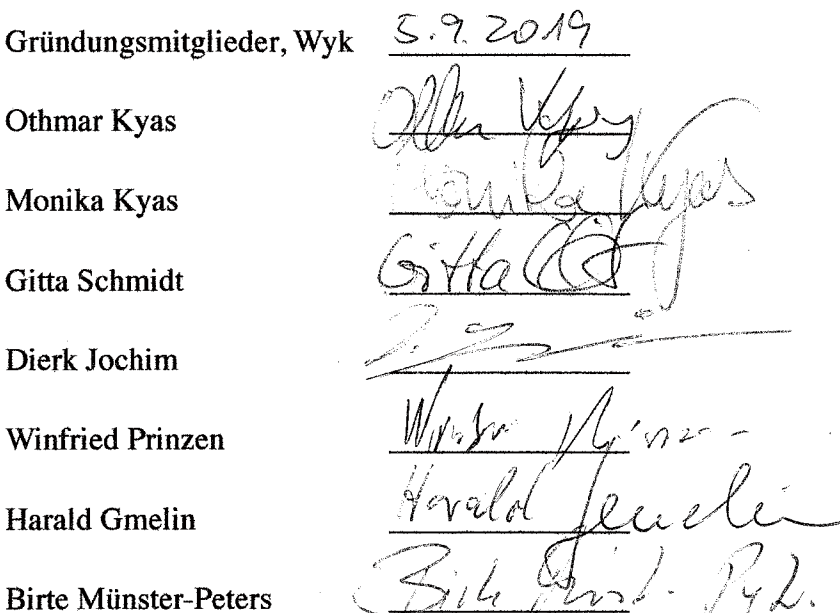 Gründungsmitglieder, Wyk 5.9.2019
Othmar Kyas
Monika Kyas Monika Kyas
Gitta Schmidt Gitta
Dierk Jochim
Winfried Prinzen
Harald Gmelin Harald Gmelin
Birte Münster-Peters